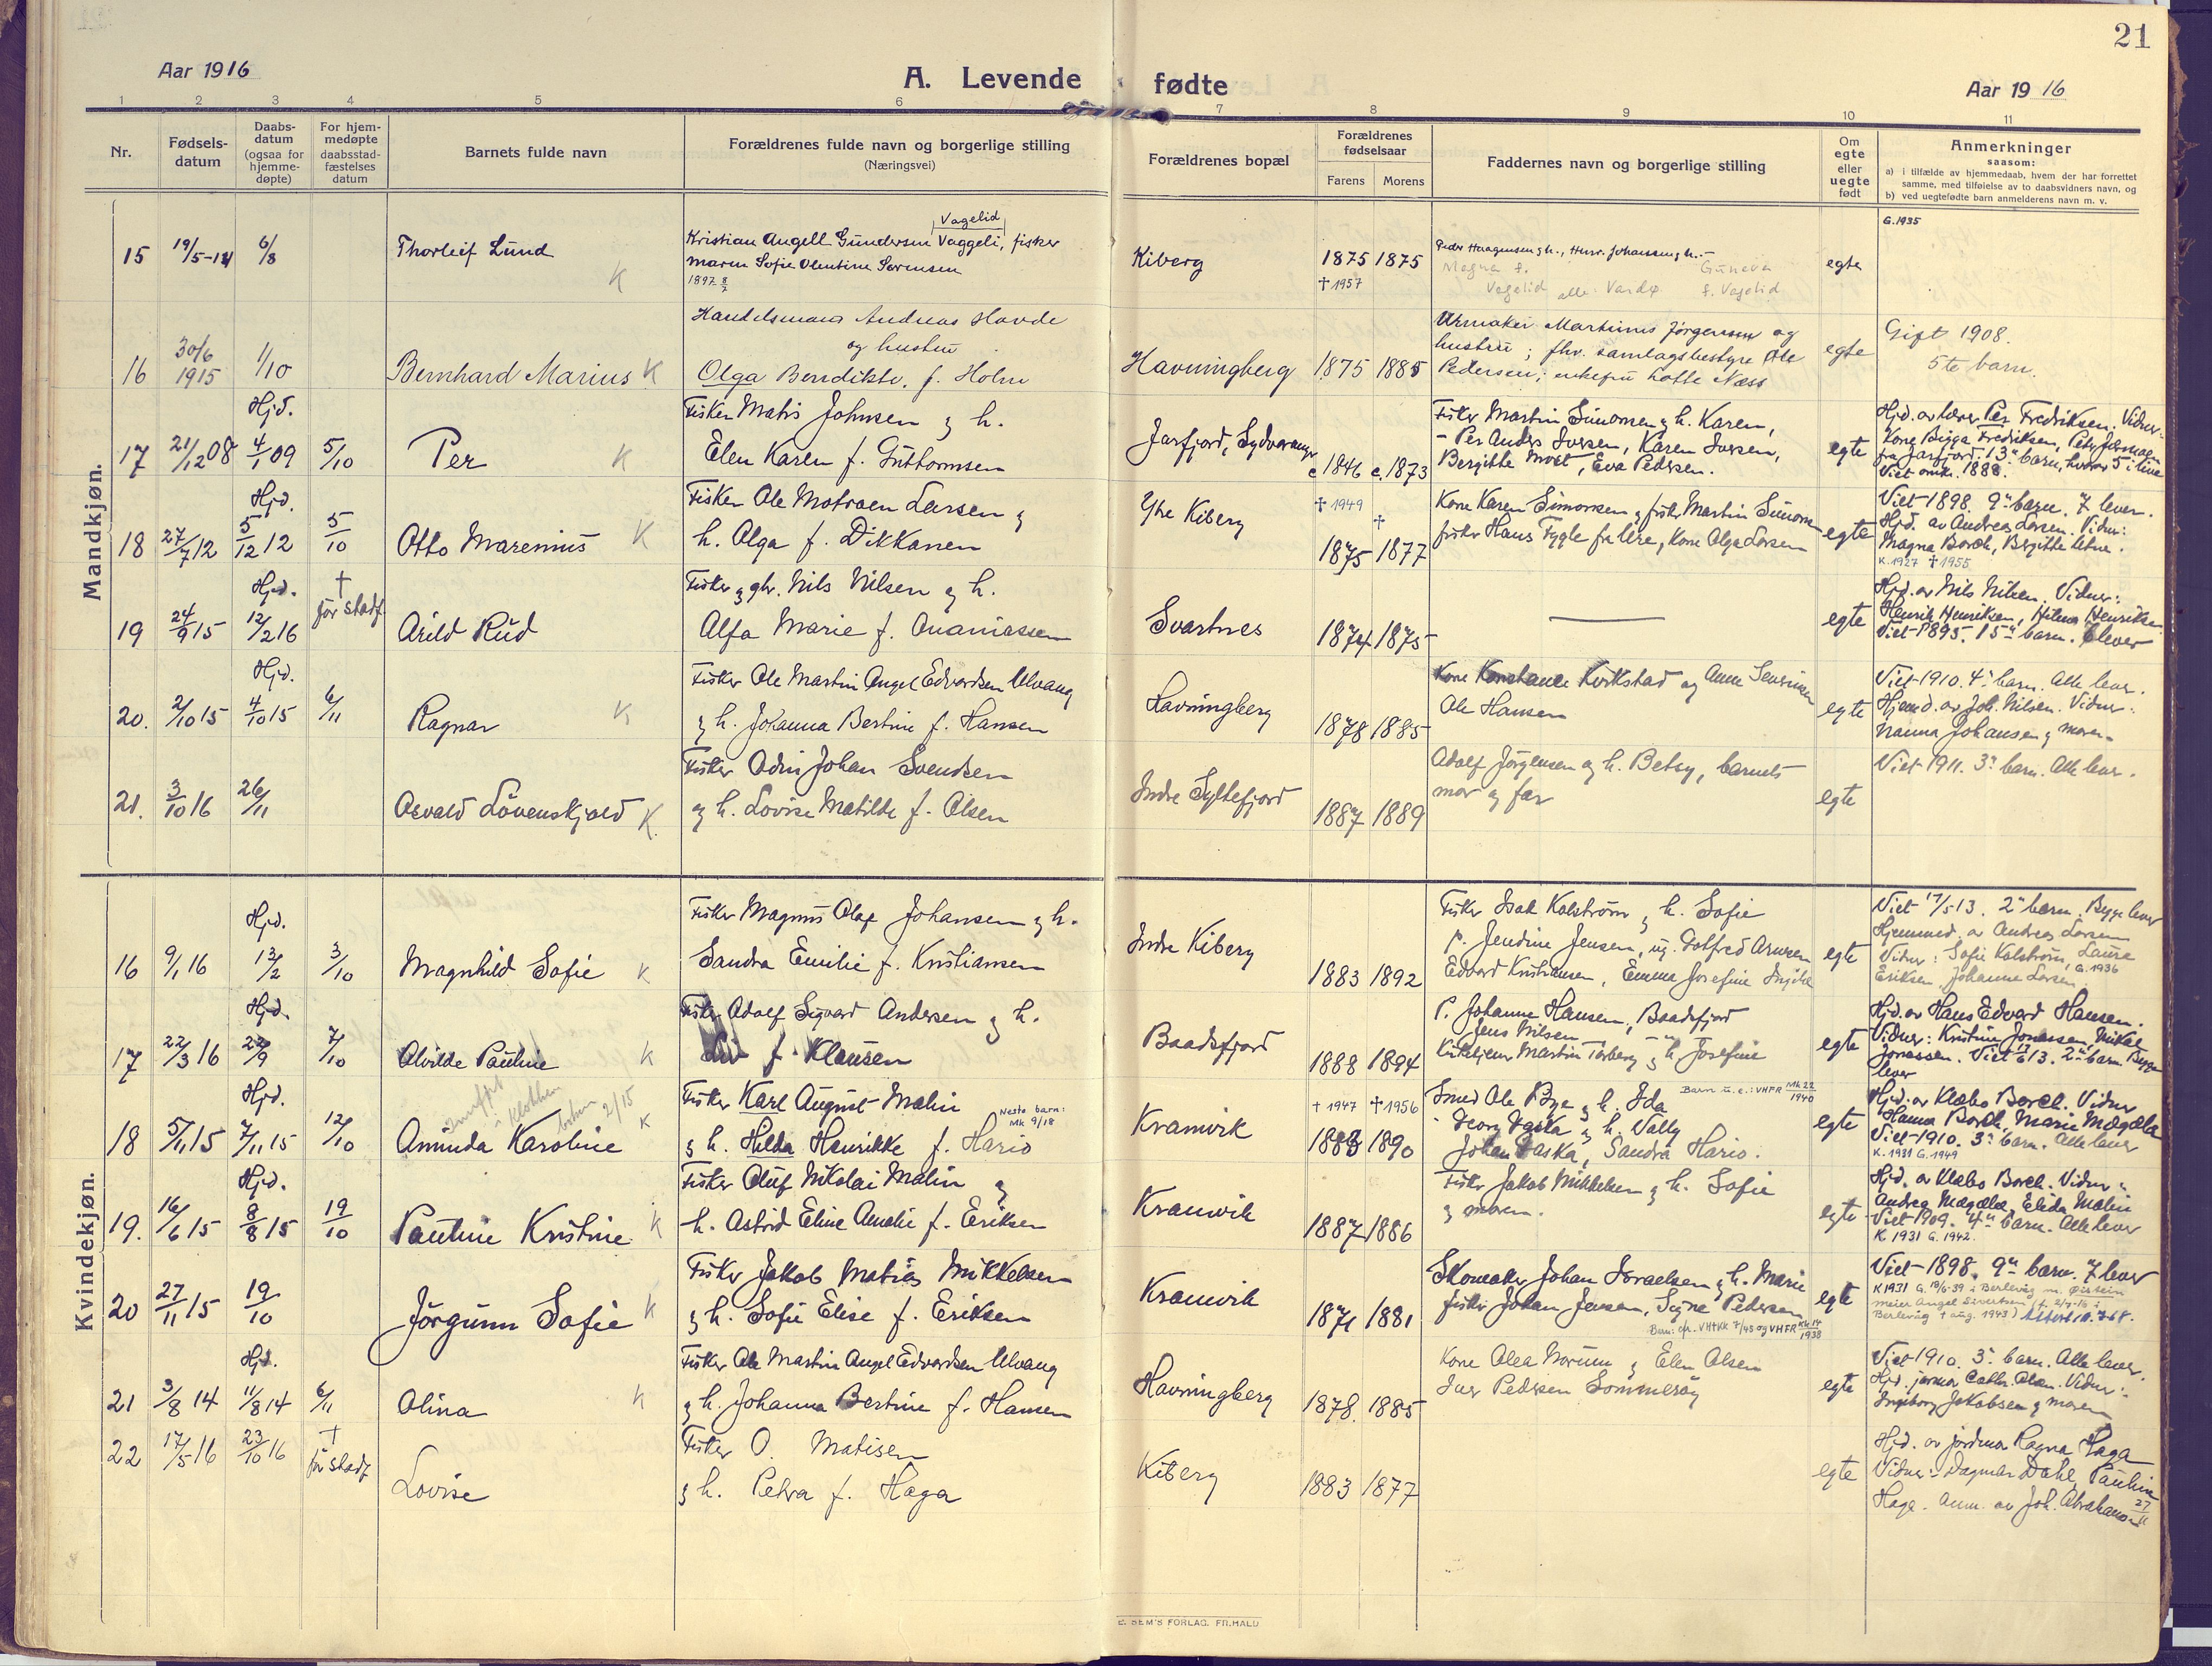 21
Aar 1916
A. Levende fødte
Aar 1916
1 2 3 4 5 6 7 8 9 10 11
Nr.
Fødsels-
datum
Daabs-
datum
(ogsaa for
hjemme-
døpte)
For hjem-
medøpte
daabsstad-
fæstelses
datum
Barnets fulde navn
Forældrenes fulde navn og borgerlige stilling
(Næringsvei)
Forældrenes bopæl
Forældrenes
fødselsaar
Farens Morens
Faddernes navn og borgerlige stilling
Om
egte
eller
uegte
født
Anmerkninger
saasom:
a) i tilfælde av hjemmedaab, hvem der har forrettet
samme, med tilføielse av to daabsvidners navn, og
b) ved uegtefødte barn anmelderens navn m. v.
Mandkjøn.
15 19/5-14 6/8 Thorleif Lund K
Vagelid
Kristian Angell Gundersen Vaggeli, fisker
Maren Sofie Olentine Sørensen
1897 8/7
Kiberg 1875 1875
† 1957
Peder Haagensen g h., Henr. Johansen g h. –
Magna f. Guneva
Vagelid alle Vardø f. Vagelid
egte
G. 1935
16 30/6 1915 1/10 Bernhard Marius K
Handelsmann Andreas Hovde
og hustru
Olga Bendikte, f. Holm
Havningberg 1875 1885
Urmaker Martinus Jørgensen og
hustru; fhv. samlagsbestyre Ole
Pedersen; enkefru Lotte Næss
egte
Gift 1908.
5te barn.
17 21/12 08 Hjd. 4/1 09 5/10 Per K
Fisker Matis Johnsen g h.
Elen Karen f. Guttormsen
Jarfjord, Sydvaranger c 1846 c. 1873
Fisker Martin Simonsen g h. Karen,
– Per Anders Iversen, Karen Iversen,
Bergitte Most, Eva Pedersen.
egte
Hjd. av lærer Per Fredriksen. Vidner:
Kone Bigga Fredriksen,
fra Jarfjord. 13de barn, hvorav 5 i live
Viet omk. 1888.
18 27/7 12 Hjd. 5/12 12 5/10 Otto Marenius K
Fisker Ole Motroen Larsen g
h. Olga f. Dikkanen
Ytre Kiberg † 1949 †
1875 1877
Kone Karen Simonsen g fisker Martin Simonsen
fisker Hans Fygle fra Ure, Kone Olga Larsen
egte
Viet 1898. 9de barn. 7 lever.
Hjd. av Andreas Larsen. Vidner:
Magna Borch, Bergitte Utne.
K. 1927 † 1955
19 24/9 15 Hjd. 12/2 16 † før stadf. Arild Rud
Fisker g gbr. Nils Nilsen og h.
Alfa Marie f. Ananiassen
Svartnes 1874 1875
egte
Hjd. av Nils Nilsen. Vidner:
Henrik Henriksen, Helena Henriksen
Viet 1895. 15de barn. 6 lever
20. 2/10 15 Hjd. 4/10 15 6/11 Ragnar K
Fisker Ole Martin Angel Edvardsen Ulvang
g h. Johanna Bertine f. Hansen
Havningberg 1878 1885
Kone Konstanse Kvikstad og Anne Severinsen
Ole Hansen
egte
Viet 1910. 4de barn. Alle lever.
Hjemd. av Joh. Nilsen. Vidner:
Nanna Johansen g moren
21. 3/10 16 26/11 Osvald Lövenskjold K.
Fisker Odin Johan Svendsen
og h. Lovise Matilde f. Olsen
Indre Syltefjord 1887 1889
Adolf Jörgensen og h. Betsy, barnets
mor og far
egte
Viet 1911. 3de barn. Alle lever.
Kvindekjøn.
16 9/1 16 Hjd. 13/2 3/10 Magnhild Sofie K
Fisker Magnus Olaf Johansen g h.
Sandra Emilie f. Kristiansen
Indre Kiberg 1883 1892
Fisker Isak Kolström g h. Sofie
p. Jendine Jensen, ug. Gotfred Arntsen
Edvard Kristiansen, Emma Josefine
egte
Viet 17/5 13. 2de barn. Begge lever
Hjemmed. av Andreas Larsen
Vidner: Sofie Kolström, Laura
Eriksen, Johanne Larsen G. 1936
17 22/3 16 Hjd. 22/9 7/10 Alvilde Pauline K
Fisker Adolf Sigvard Andersen g h.
Liv f. Klausen
Baadsfjord 1888 1894
P. Johanne Hansen, Baadsfjord
Jens Nilsen – " –
Kirketjener Martin Torberg g h. Josefine
egte
Hjd. av Hans Edvard Hansen.
Vidner: Kristine Jonassen, Mikal
Jonassen. Viet 17/6 13. 2de barn. Begge
lever
18 5/11 15 Hjd. 7/11 15 12/10 Aminda Karoline K
innført i klokker boken 2/15
Fisker Karl August Malin
g h. Hilda Henrikke f. Hario
Neste barn:
Mk 9/18
Kramvik † 1947 † 1956
1883 1890
Smed Ole Bye g h. Ida
Barn u. e.: VHFR Mk 22 1940
Georg Jaska g h. Wally
Johan Jaska, Sandra Hario.
egte
Hjd. av Klebo Borch. Vidner
Hanna Borch, Marie Magdela
Viet 1910. 3de barn. Alle lever
K. 1931 G. 1949
19. 16/6 15 Hjd. 8/8 15 19/10 Pauline Kristine K
Fisker Oluf Nikolai Malin og
h. Astrid Eline Amalie f. Eriksen
Kramvik 1887 1886
Fisker Jakob Mikkelsen g h. Sofie
g moren.
egte
Hjd. av Klebo Borch. Vidner:
Andrea Magdela, Elida Malin
Viet 1909. 4de barn. Alle lever
K. 1931 G. 1942.
20 27/11 15 19/10 Jörgunn Sofie K
Fisker Jakob Matias Mikkelsen
g h. Sofie Elise f. Eriksen
Kramvik 1871 1881
Skomaker Johan Israelsen g h. Marie
fisker Johan Jensen, Signe Pedersen
Barn: cfr. VHKK 7/45 og VHFR Kk 14 1938
egte
Viet 1898. 9de barn. 7 lever
K 1931 G. 18/6-39 i Berlevåg m. Øistein
Meier Angel Sivertsen (f. 2/7-15 i
Berlevåg † aug. 1943)
21 3/8 14 Hjd. 11/8 14 6/11 Olina K
Fisker Ole Martin Angel Edvardsen Ulvang
g h. Johanna Bertine f. Hansen
Havningberg 1878. 1885
Kone Olea Norum g Elen Olsen
Iver Pedersen Sommersöy
egte
Viet 1910. 3de barn. Alle lever.
Hjd. jormor Cathr. Olsen. Vidner:
Ingeborg Jakobsen g moren
22 17/5 16 23/10 16 † før stadf Lovise
Fisker O. Matisen
g h. Petra f. Haga
Kiberg 1883 1877
egte
Hjd. av jordmor Ragna Haga
Vidner: Dagmar Dahl, Pauline
Haga. Anm. av Joh. Abrahamsen 27/11
E. SEM'S FORLAG. FR.HALD